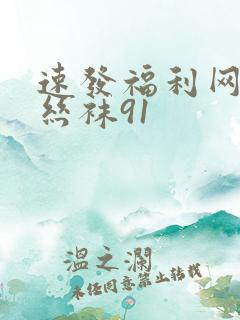 速發福利网
丝袜91
溫之瀾
未任同意禁止转载